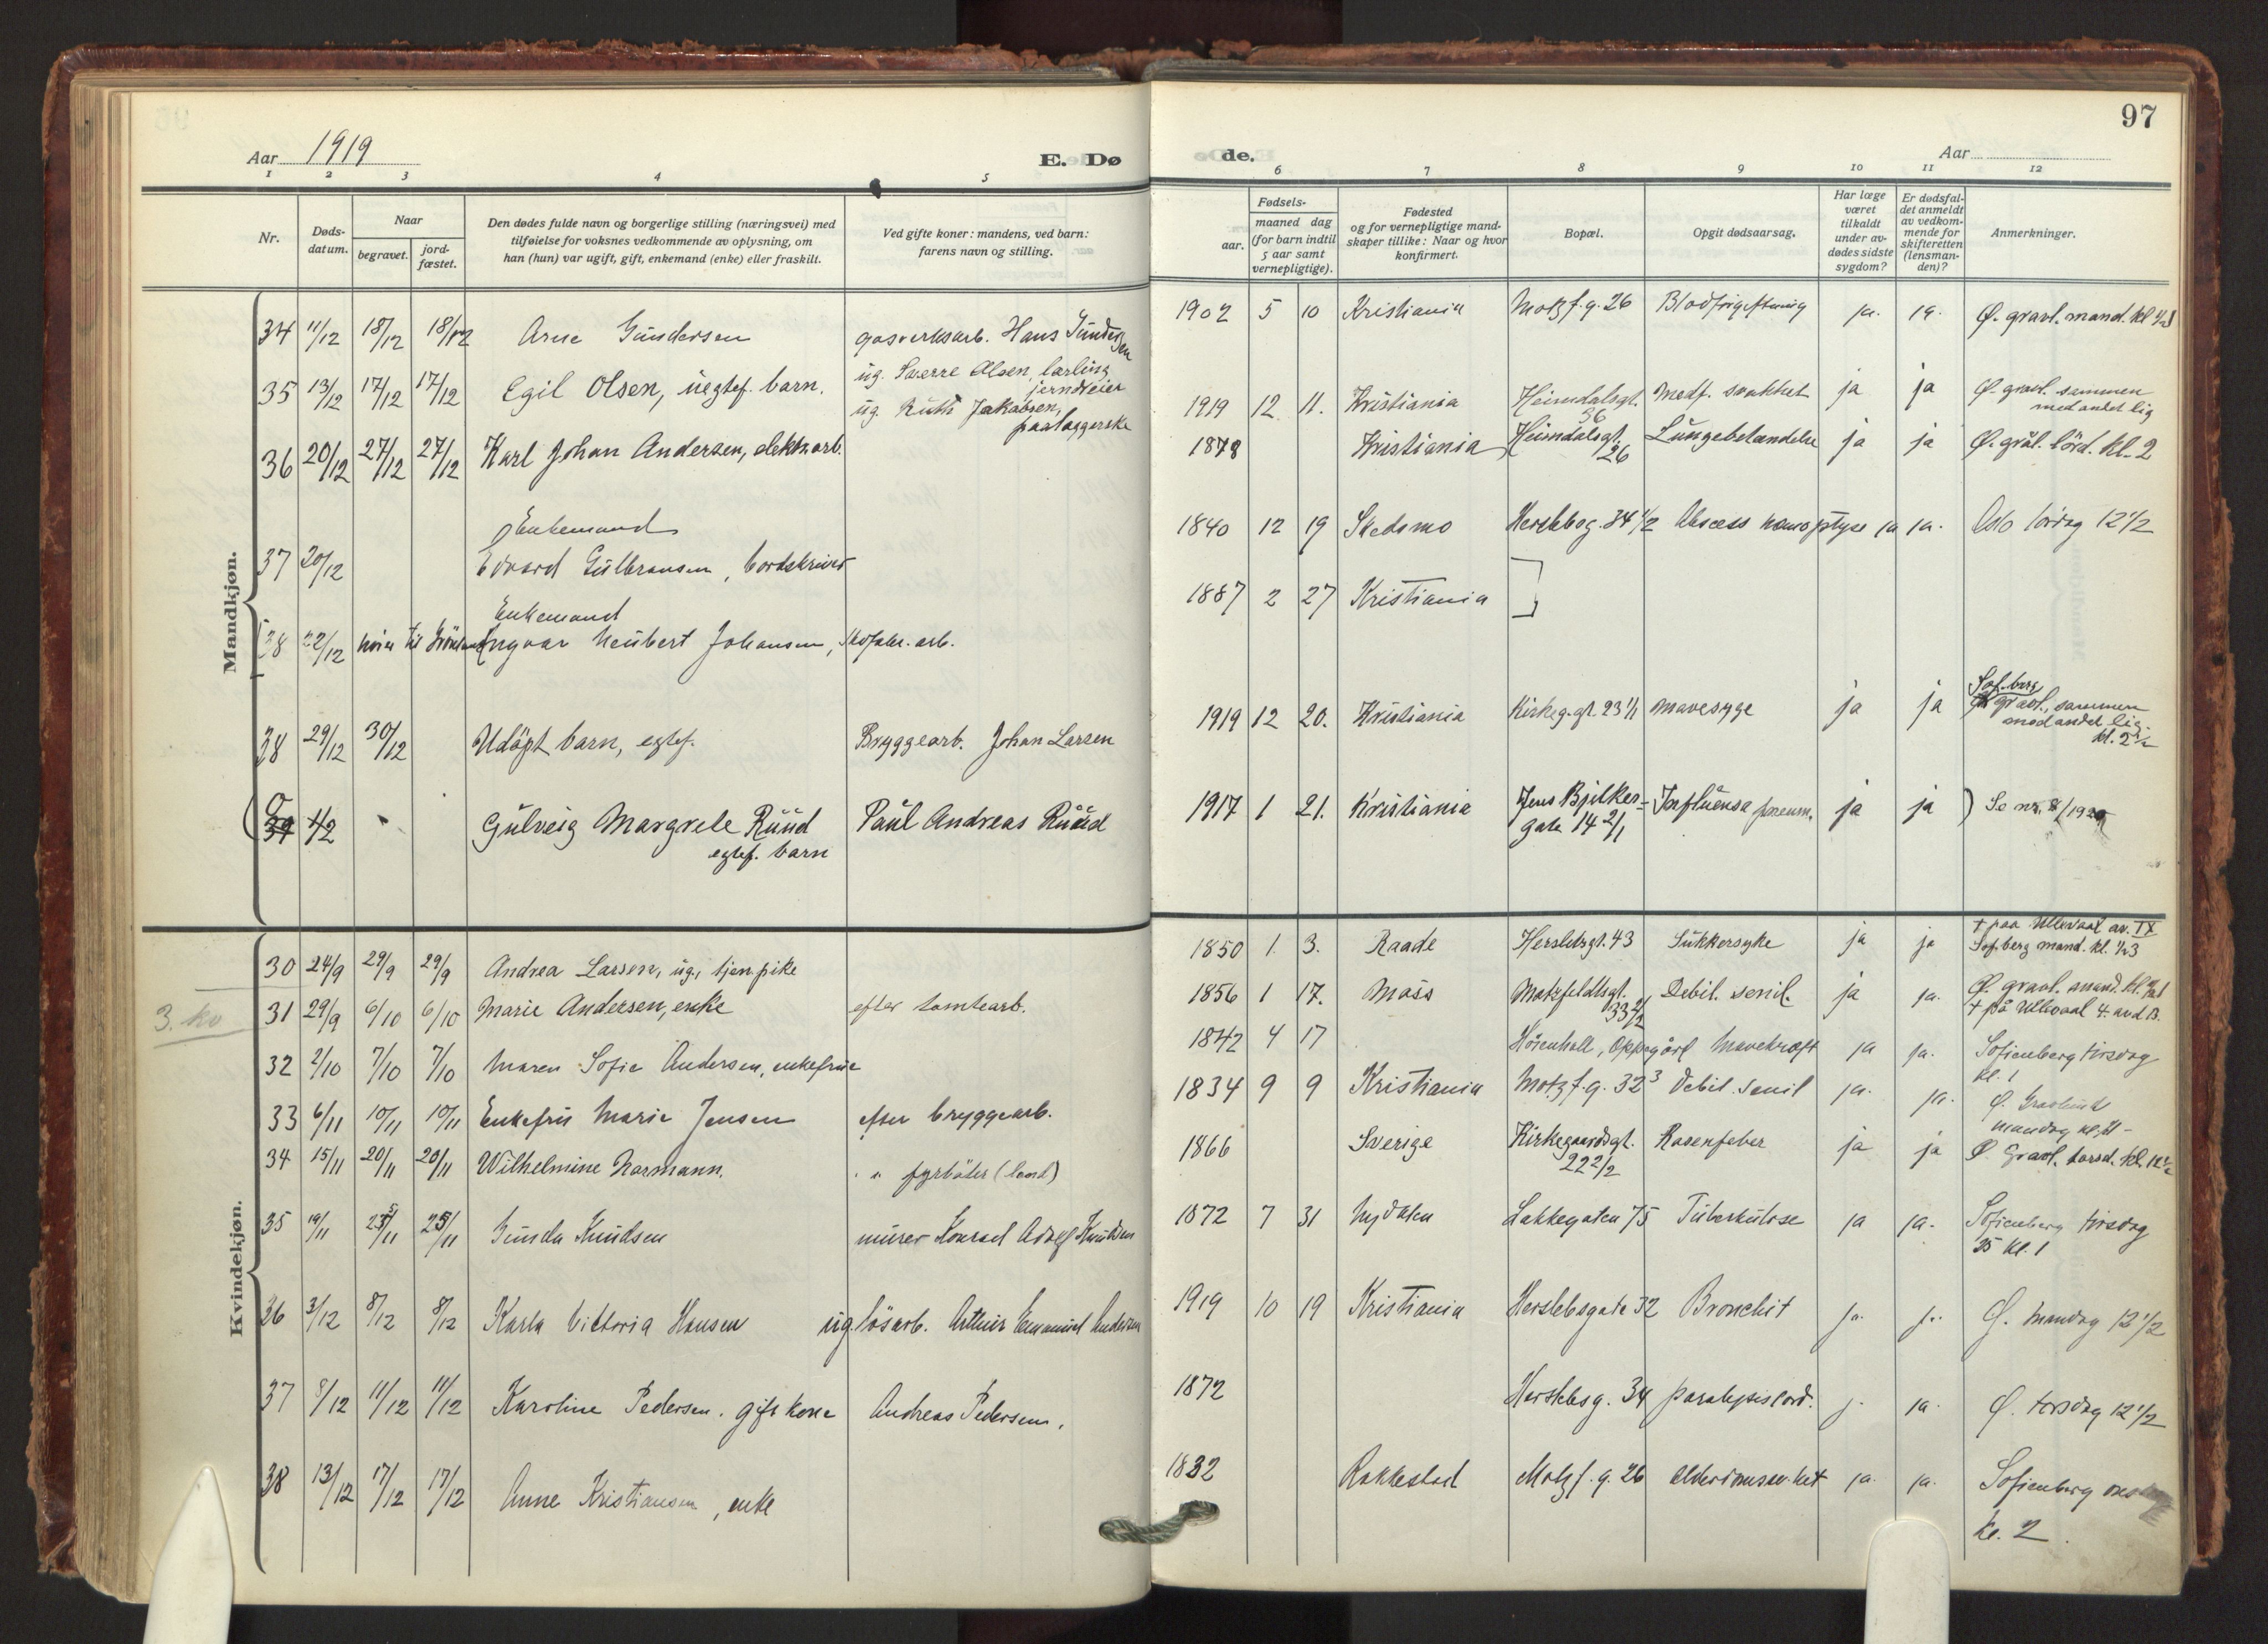 97
Aar 1919
E. Dø
de.
Aar
1 2 3 4 5 6 7 8 9 10 11 12
Nr.
Døds-
datum.
Naar
begravet.
jord-
fæstet.
Den dødes fulde navn og borgerlige stilling (næringsvei) med
tilføielse for voksnes vedkommende av oplysning, om
han (hun) var ugift, gift, enkemand (enke) eller fraskilt.
Ved gifte koner: mandens, ved barn:
farens navn og stilling.
Fødsels-
aar.
maaned dag
(for barn indtil
5 aar samt
vernepligtige).
Fødested
og for vernepligtige mand-
skaper tillike: Naar og hvor
konfirmert.
Bopæl.
Opgit dødsaarsag.
Har læge
været
tilkaldt
under av-
dødes sidste
sygdom?
Er dødsfal-
det anmeldt
av vedkom-
mende for
skifteretten
(lensman-
den)?
Anmerkninger.
Mandkjøn.
34 11/12 18/12 18/12 Arne Gundersen gasverksarb. Hans Gundersen 1902 5 10 Kristiania Motzf.g. 26 Blodforgiftning ja. ja. Ø. gravl. mand. kl.
35 13/12 17/12 17/12 Egil Olsen, uegtef. barn. ug. Sverre Olsen, lærling
jerndreier
ug. Ruth Jakobsen,
paalæggerske
1919 12 11. Kristiania Heimdalsgt. 36 Medf. svakhet ja ja Ø. gravl. sammen
med andet lig
36 20/12 27/12 27/12 Karl Johan Andersen, elektr. arb. 1878 Kristiania Heimdalsgt. 26 Lungebetændelse ja ja Ø. grål. lörd. kl. 2
Enkemand
37 20/12 Edvard Gulbransen, bordskriver 1840 12 19 Skedsmo Herslebsg. 34 1/2 Abscess hemoptyse ja ja. Oslo lördag 12 1/2
Enkemand
38 22/12 hörer til Grönland Ingvar Neubert Johansen, Skofabr. arb. 1887 2 27 Kristiania
38 29/12 30/12 Udöpt barn, egtef. Bryggearb. Johan Larsen 1919 12 20. Kristiania Kirkeg.gt. 23 1/1 mavesyge ja ja Sof.berg
gravl., sammen
med andet lig.
kl. 2 1/2
39 4/2 Gulveig Margrete Ruud
egtef. barn
Paul Andreas Ruud 1917 1 21. Kristiania Jens Bjelkes-
gate 14 2/1
Influensa pneum. ja ja ) Se nr. 8/1920
Kvindekjøn.
30 24/9 29/9 29/9 Andrea Larsen, ug., tjen.pike 1850 1 3. Raade Herslebsgt. 43 Sukkersyke ja ja † paa Ullevaal av. IX
Sof.berg mand. kl. 1/2 3
3. kv
31 29/9 6/10 6/10 Marie Andersen, enke efter tomtearb. 1856 1 17. Moss Motzfeldtsgt. 33 2/2 Debil. senil. ja ja. Ø. gravl. mand. kl.
† på Ullevaal 4. avd B.
32 2/10 7/10 7/10 Maren Sofie Andersen, enkefrue 1842 4 17 Oppegård Mavekræft ja ja. Sofienberg tirsdag
kl. 1
33 6/11 10/11 10/11 Enkefru Marie Jensen efter bryggearb. 1834 9 9 Kristiania Motzf.g. 32 3 Debil. senil ja. ja. Ø. Gravlund
mandag kl.
34 15/11 20/11 20/11 Wilhelmine Normann. " " fyrböter (land) 1866 Sverige Kirkegaardsgt.
22 2/2
Rosenfeber ja ja Ø. Gravl. torsd. kl. 12 1/2
35 19/11 25/11 25/11 Gunda Knudsen murer Konrad Adolf Knudsen 1872 7 31 Nydalen Lakkegaten 75 Tuberkulose ja ja. Sofienberg tirsdag
25 kl. 1
36 3/12 8/12 8/12 Karla Viktoria Hansen ug. lösarb. Arthur Emanuel Andersen 1919 10 19 Kristiania Herslebsgate 32 Bronchit ja. ja. Ø. mandag 12 1/2
37 8/12 11/12 11/12 Karoline Pedersen. gift kone Andreas Pedersen. 1872 Herslebsg. 34 paralysis cord. j. ja. Ø. torsdag 12 1/2
38 13/12 17/12 17/12 Anne Kristiansen, enke 1832 Rakkestad Motzf.g. 26 Alderdomssv.het ja. ja. Sofienberg
kl. 2.